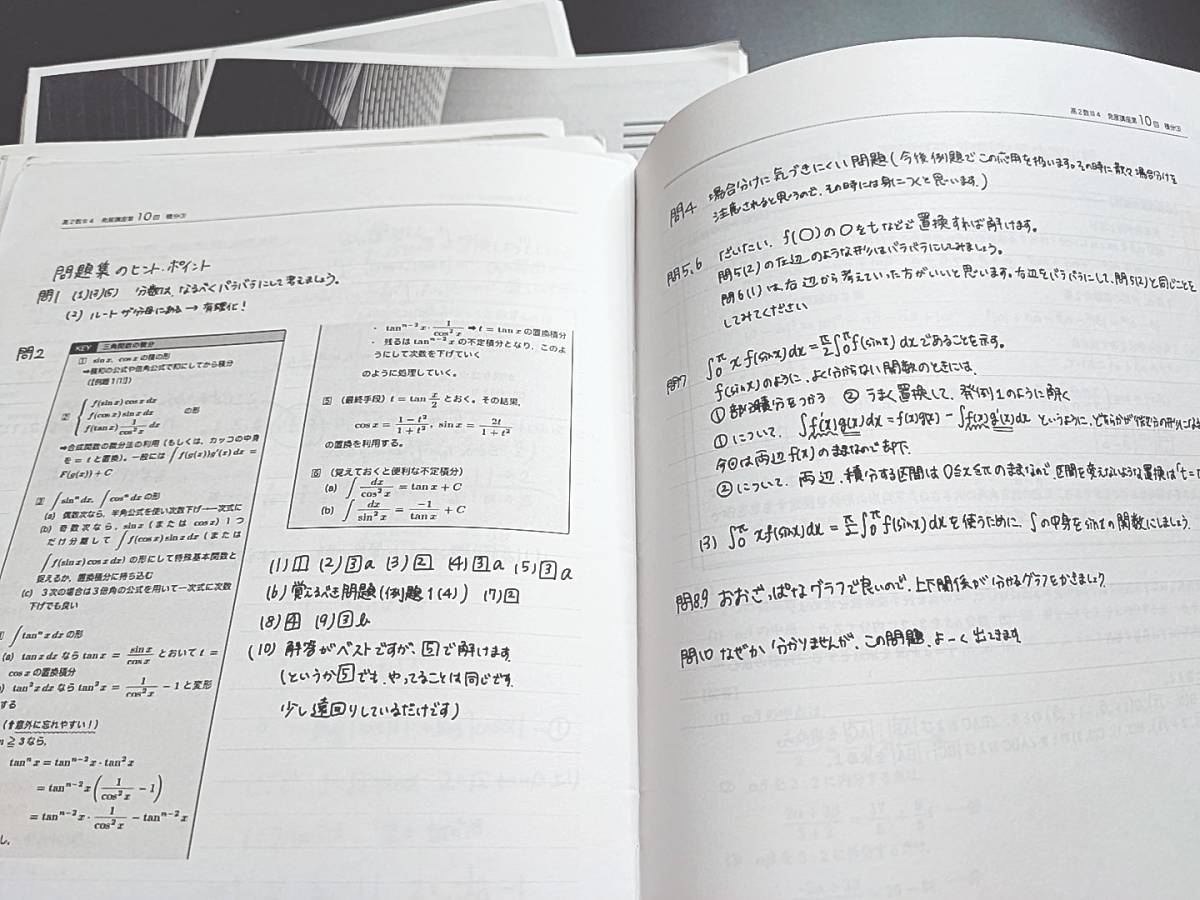 高2数Ⅲ4 発展講座第10回 積分③
問題集のヒント・ポイント
問1 (1)(3)(5) 分数は、なるべくバラバラにして考えましょう。
(2) ルートが分母にある → 有理化！
問2
KEY 三角関数の積分
① sin x, cos x の積の形
⇒積和の公式や倍角公式で和にしてから積分
(【例題1(1)】)
② { f(sin x) cos x dx
f(cos x) sin x dx の形
f(tan x) 1/cos² x dx
⇒合成関数の微分法の利用（もしくは、カッコの中身
を = t と置換）。一般には ∫ f(g(x))g'(x) dx =
F(g(x)) + C
③ ∫ sinⁿ dx, ∫ cosⁿ dx の形
(a) 偶数次なら、半角公式を使い次数下げ→一次式に
(b) 奇数次なら、sin x（または cos x）1つ
だけ分離して ∫ f(cos x) sin x dx（または
∫ f(sin x) cos x dx）の形にして特殊基本関数と
捉えるか、置換積分に持ち込む
(c) 3次の場合は3倍角の公式を用いて一次式に次数
下げでも良い
∫ tanⁿ x dx の形
(a) tan x dx なら tan x = sin x/cos x とおいて t =
cos x の置換積分
tan² x dx なら tan² x = 1/cos² x − 1 と変形
する
(↑意外に忘れやすい！)
n ≧ 3 なら、
tanⁿ x = tanⁿ⁻² x · tan² x
= tanⁿ⁻² x (1/cos² x − 1)
= tanⁿ⁻² x · 1/cos² x − tanⁿ⁻² x
し、
・ tanⁿ⁻² x · 1/cos² x ⇒ t = tan x の置換積分
・ 残るは tanⁿ⁻² x の不定積分となり、このよ
うにして次数を下げていく
のように処理していく。
⑤（最終手段）t = tan x/2 とおく。その結果、
cos x = (1 − t²)/(1 + t²), sin x = 2t/(1 + t²)
の置換を利用する。
⑥（覚えておくと便利な不定積分）
(a) ∫ dx/cos² x = tan x + C
(b) ∫ dx/sin² x = −1/tan x + C
(1) ① (2) ③a (3) ② (4) ③a (5) ③a
(6) 覚えるべき問題(例題1(4)) (7) ②
(8) ④ (9) ③b
(10) 解答がベストですが、⑤で解けます。
(というか⑤でも、やってることは同じです。
少し遠回りしているだけです)
高2数Ⅲ4 発展講座第10回 積分③
問4 場合分けに気づきにくい問題(今後例題でこの応用を扱います。その時に散々場合分けを
注意されると思うので、その時には身につくと思います。)
問5,6 だいたい、f(○)の○をtなどで置換すれば解けます。
問5(2)の左辺のような形はバラバラにしてみましょう。
問6(1)は、右辺から考えていった方がいいと思います。右辺をバラバラにして、問5(2)と同じことを
してみてください
問7 ∫₀^π x f(sin x) dx = π/2 ∫₀^π f(sin x) dx であることを示す。
f(sin x)のように、よく分からない関数のときには、
①部分積分をつかう ②うまく置換して、発例1のように解く
①について、∫f'(x)g(x)dx = f(x)g(x) − ∫f(x)g'(x)dx というように、どちらかが微分の形になる
今回は両辺f(x)のままなので却下
②について、両辺、積分する区間は0≦x≦πのままなので、区間を変えないような置換は「t=π
(3) ∫₀^π x f(sin x) dx = π/2 ∫₀^π f(sin x) dx を使うために、∫の中身をsin xの関数にしましょう。
問8.9 おおざっぱなグラフで良いので、上下関係が分かるグラフをかきましょう。
問10 なぜか分かりませんが、この問題、よーく出てきます。